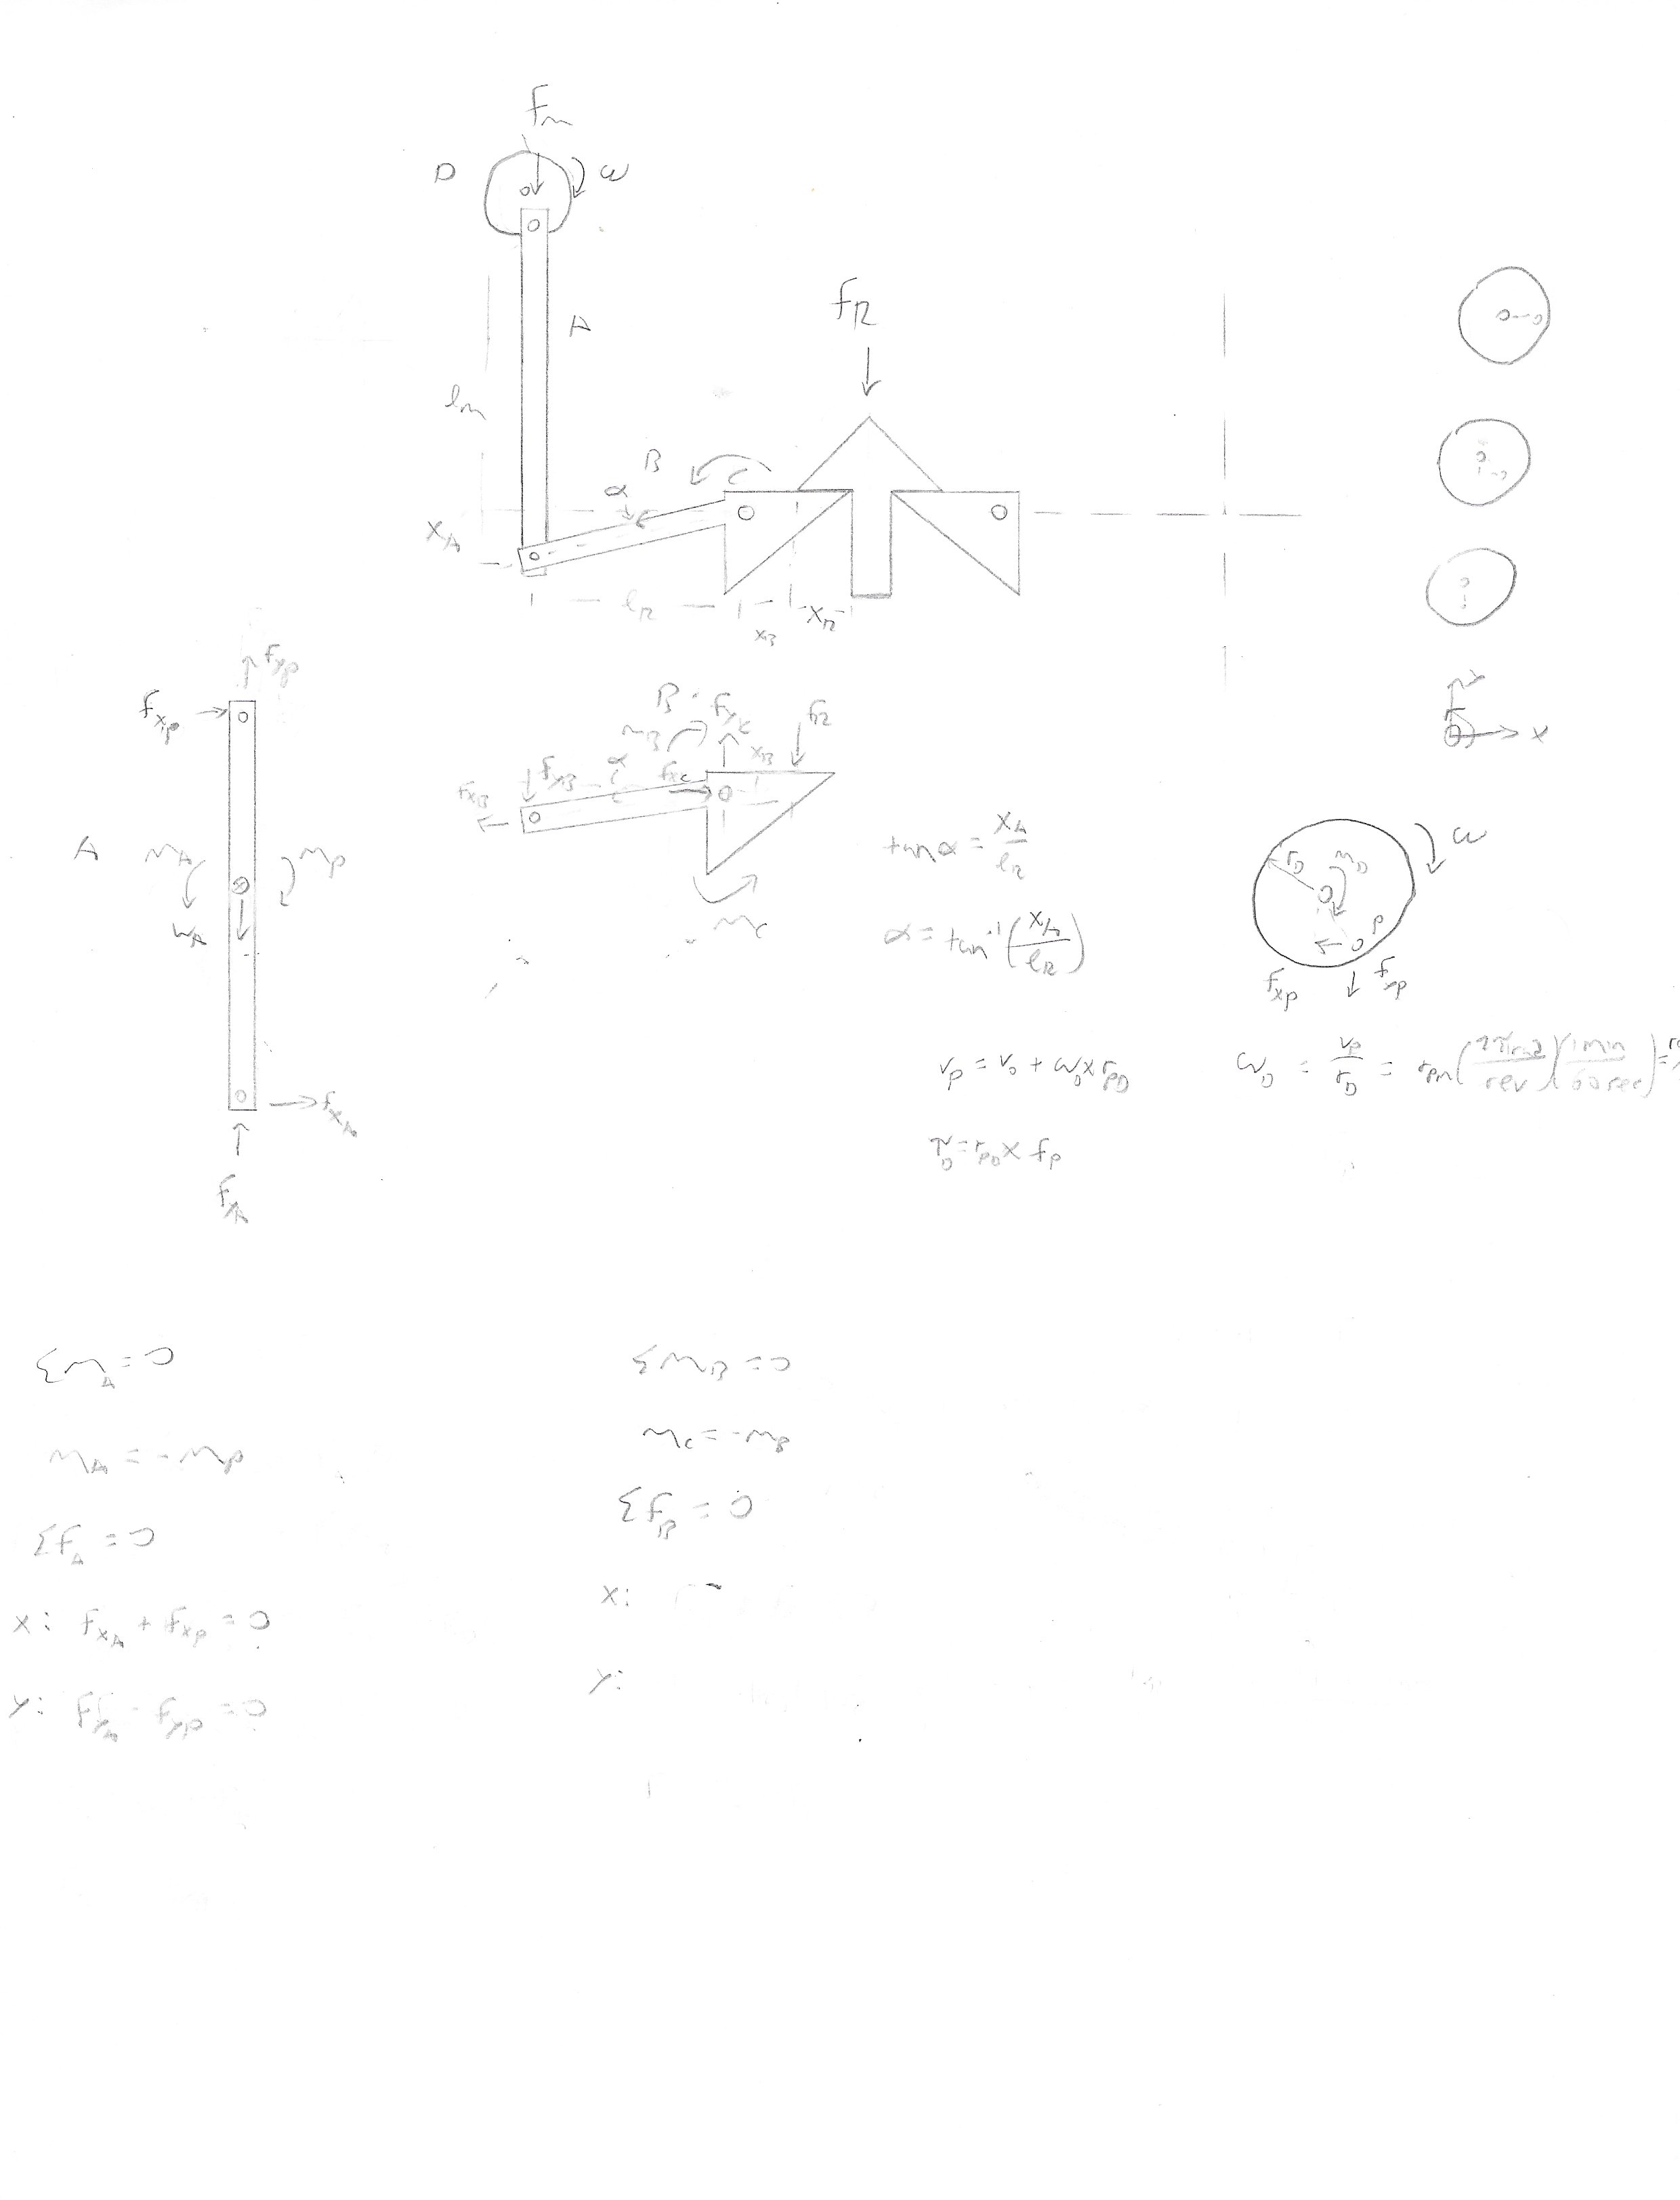 fm
D
ω
A
lm
fR
B
C
α
xA
lR
xB
xR
fyp
fxp
A
mA
mp
WA
fxA
fyA
B
mB
fyc
fR
xB
fxB
fyB
α
fxc
mc
y
x
tan α = xA/lR
α = tan⁻¹(xA/lR)
rD
mD
ω
p
fxp
fyp
vp = v0 + ωD × rpD
ωD = vp/rD = rpm(2π rad/rev)(1 min/60 sec) =
τD = rpD × fp
ΣmA = 0
mA = -mp
ΣfA = 0
x: fxA + fxp = 0
y: fyA - fyp = 0
ΣmB = 0
mc = -mB
ΣfB = 0
x:
y: